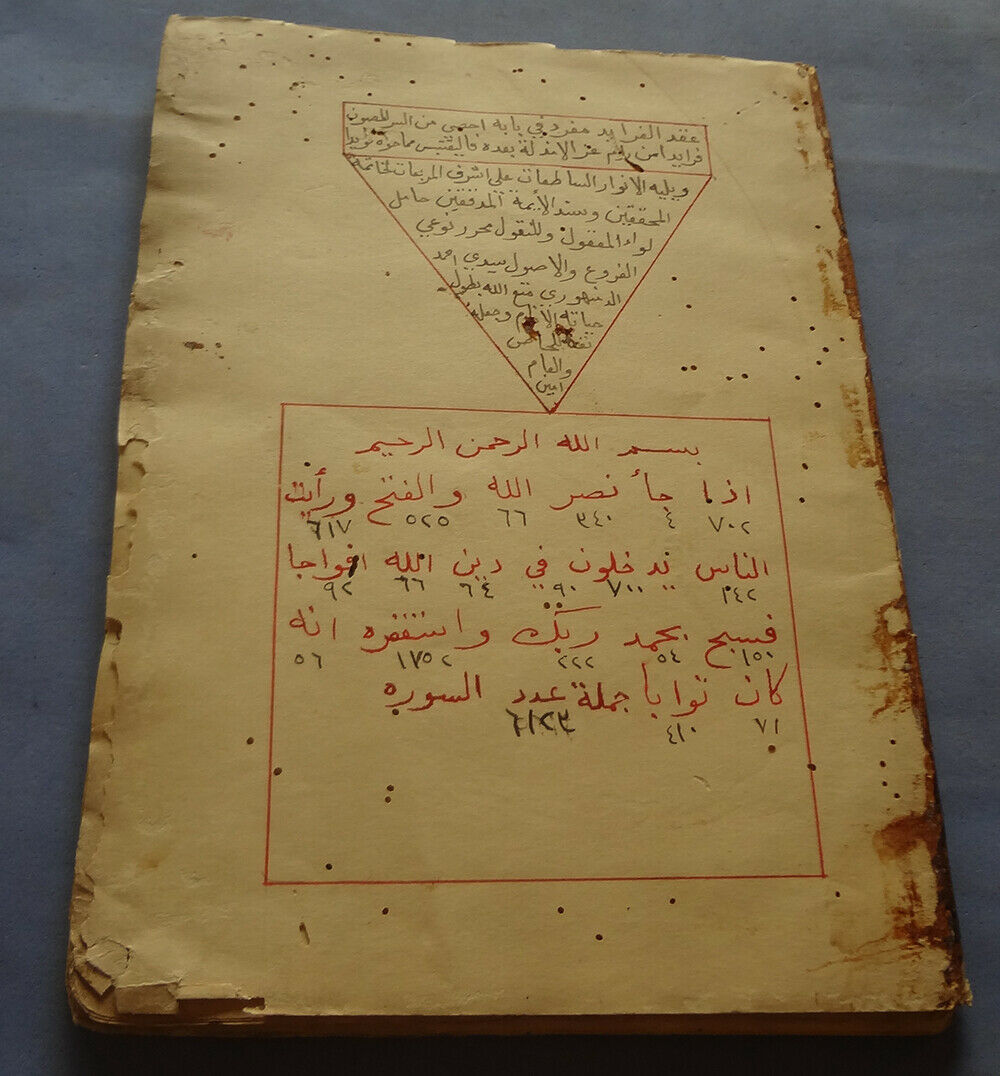 عقد الفرايد مفرد في بابه احصى من السر المصون
فرايدا من رام عز الانذلة بعده فاليقتبس مما حوه
ويليه الانوار الساطعات على اشرف المربعات لخاتمة
المحققين وسند الأيمة المدققين حامل
لواء المعقول وللنقول محرر نوعي
الفروع والاصول سيدي احمد
الدمنهوري متع الله بطول
حياته الانام وجعله
والعام
امين
بسم الله الرحمن الرحيم
اذا جأ نصر الله والفتح ورأيت
٧٠٢ ٤ ٣٤٠ ٦٦ ٥٢٥ ٦١٧
الناس يدخلون في دين الله افواجا
١٤٢ ٧٠٠ ٩٠ ٦٤ ٦٦ ٩٢
فسبح بحمد ربك واستغفره انه
١٥٠ ٥٤ ٢٢٢ ١٧٥٢ ٥٦
كان توابا جملة عدد السوره
٧١ ٤١٠ ٦١٢٣